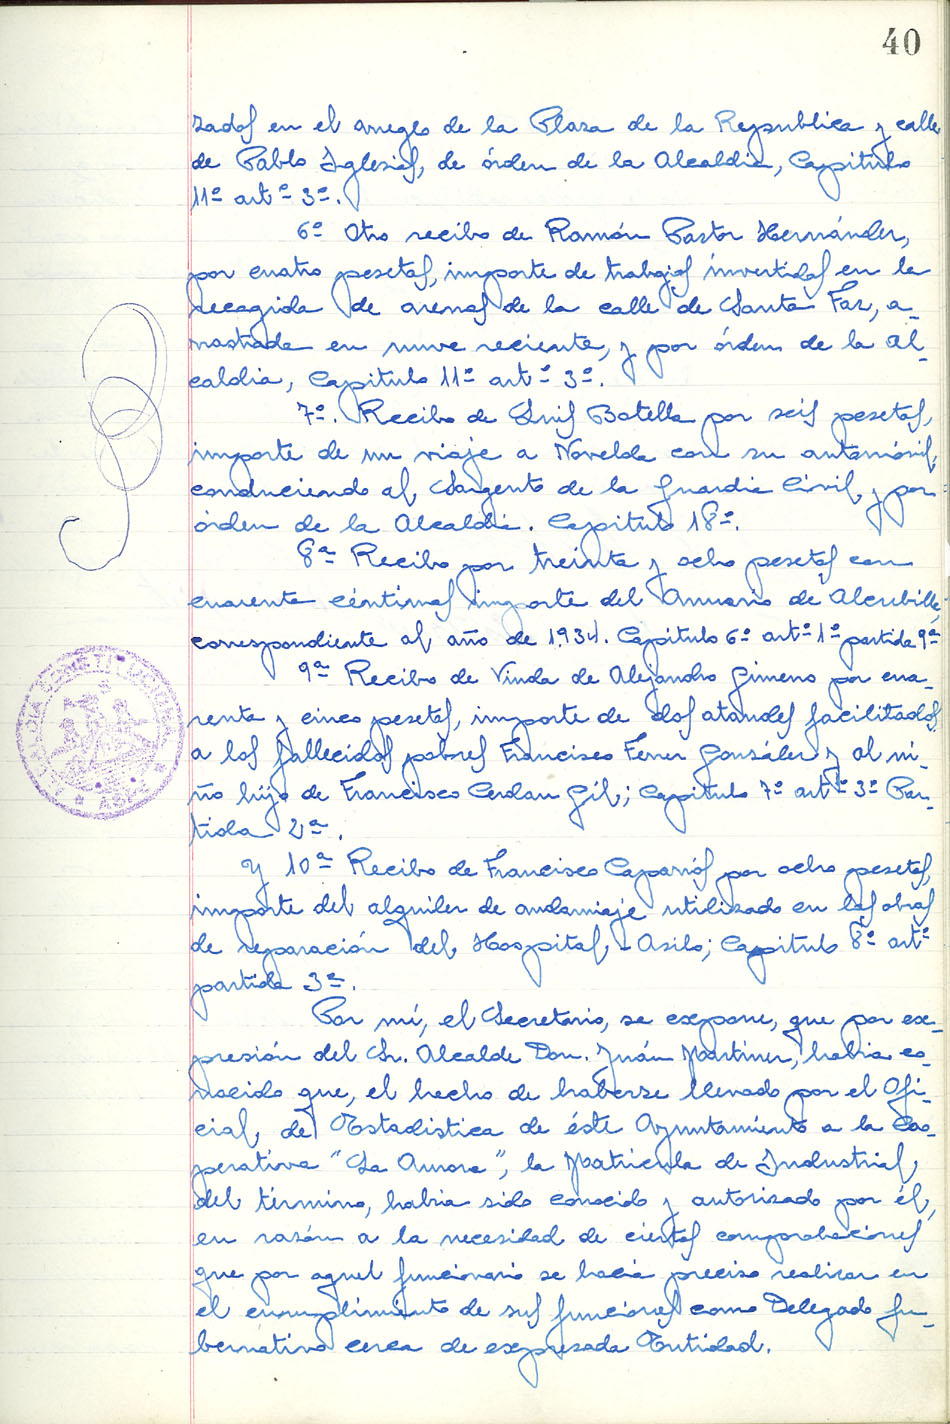 40
zados en el arreglo de la Plaza de la Republica y calle
de Pablo Iglesias, de órden de la Alcaldia, Capitulo
11º artº 3º.
6º Otro recibo de Ramón Pastor Hernández,
por cuatro pesetas, importe de trabajos invertidos en la
recogida de arenas de la calle de Santa Faz, a-
rrastrada en nuve reciente, y por órden de la Al-
caldia, Capitulo 11º artº 3º.
7º. Recibo de Luis Botella por seis pesetas,
importe de un viaje a Novelda con su automóvil,
conduciendo al Sargento de la Guardia Civil, y por
órden de la Alcaldia. Capitulo 18º.
8ª Recibo por treinta y ocho pesetas con
cuarenta céntimos importe del Anuario de Alcubilla,
correspondiente al año de 1934. Capitulo 6º artº 1º partida 9ª
9ª Recibo de Viuda de Alejandro Gimeno por cua-
renta y cinco pesetas, importe de dos ataudes facilitados
a los fallecidos pobres Francisco Ferrer González y al ni-
ño hijo de Francisco Cerdan Gil; Capitulo 7º artº 3º Par-
tida 2ª.
Y 10ª Recibo de Francisco Caparrós por ocho pesetas,
importe del alquiler de andamiaje utilizado en las obras
de reparación del Hospital-Asilo; Capitulo 8º artº
partida 3ª.
Por mí, el Secretario, se expone, que por ex-
presión del Sr. Alcalde Don. Juán Martinez, habia co-
nocido que, el hecho de haberse llevado por el Ofi-
cial, de Estadistica de éste Ayuntamiento a la Coo-
perativa "La Aurora", la Matricula de Industrial,
del término, habia sido conocido y autorizado por él,
en razón a la necesidad de ciertas comprobaciones
que por aquel funcionario se hacia preciso realizar en
el cumplimiento de sus funciones como Delegado Gu-
bernativo cerca de expresada Entidad.
ALCALDIA CONSTITUCIONAL
ASPE